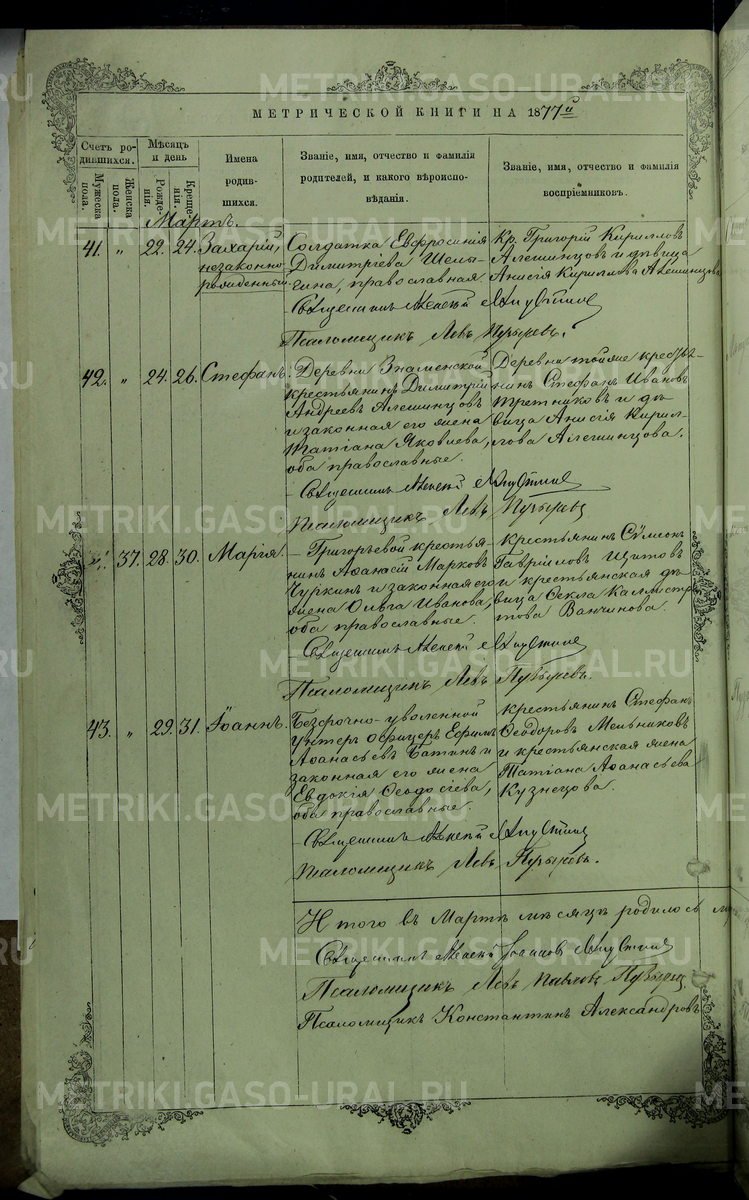 МЕТРИЧЕСКОЙ КНИГИ НА 1877й
Счетъ родившихся.
Мужеска пола.
Женска пола.
Мѣсяцъ и день
Рожденія.
Крещенія.
Имена родившихся.
Званіе, имя, отчество и фамилія родителей, и какого вѣроисповѣданія.
Званіе, имя, отчество и фамилія воспріемниковъ.
Мартъ.
41. " 22. 24. Захарій, незаконнорожденный.
Солдатка Евфросинія
Димитріева Шелы-
гина, православная.
Кр. Григорій Кирилловъ
Алешинцовъ и дѣвица
Анисія Кириллова Алешинцова
Священникъ Алексій
Псаломщикъ Левъ Пузыревъ.
42. " 24. 26. Стефанъ.
Деревни Знаменской
крестьянинъ Димитрій
Андреевъ Алешинцовъ
и законная его жена
Татіана Яковлева,
оба православные.
Деревни тойже крестья-
нинъ Стефанъ Ивановъ
Третниковъ и дѣ-
вица Анисія Кирил-
лова Алешинцова.
Священникъ Алексій
Псаломщикъ Левъ Пузыревъ
" 37. 28. 30. Марія.
Григорьевой крестья-
нинъ Аѳанасій Марковъ
Чуркинъ и законная его
жена Ольга Иванова,
оба православные.
Крестьянинъ Сѵмеонъ
Гавріиловъ Щитовъ
и крестьянская дѣ-
вица Ѳекла Каллистра-
това Ванчинова.
Священникъ Алексій
Псаломщикъ Левъ Пузыревъ.
43. " 29. 31. Іоаннъ.
Безсрочно-уволенной
Унтеръ Офицеръ Ефимъ
Аѳанасьевъ Батинъ и
законная его жена
Евдокія Ѳеодосіева,
оба православные.
Крестьянинъ Стефанъ
Ѳеодоровъ Мельниковъ
и крестьянская жена
Татіана Аѳанасьева
Кузнецова.
Священникъ Алексій
Псаломщикъ Левъ Пузыревъ.
Итого въ Мартѣ мѣсяцѣ родилось
Священникъ Алексій Іоанновъ
Псаломщикъ Левъ Павловъ Пузыревъ
Псаломщикъ Константинъ Александровъ
METRIKI.GASO-URAL.RU